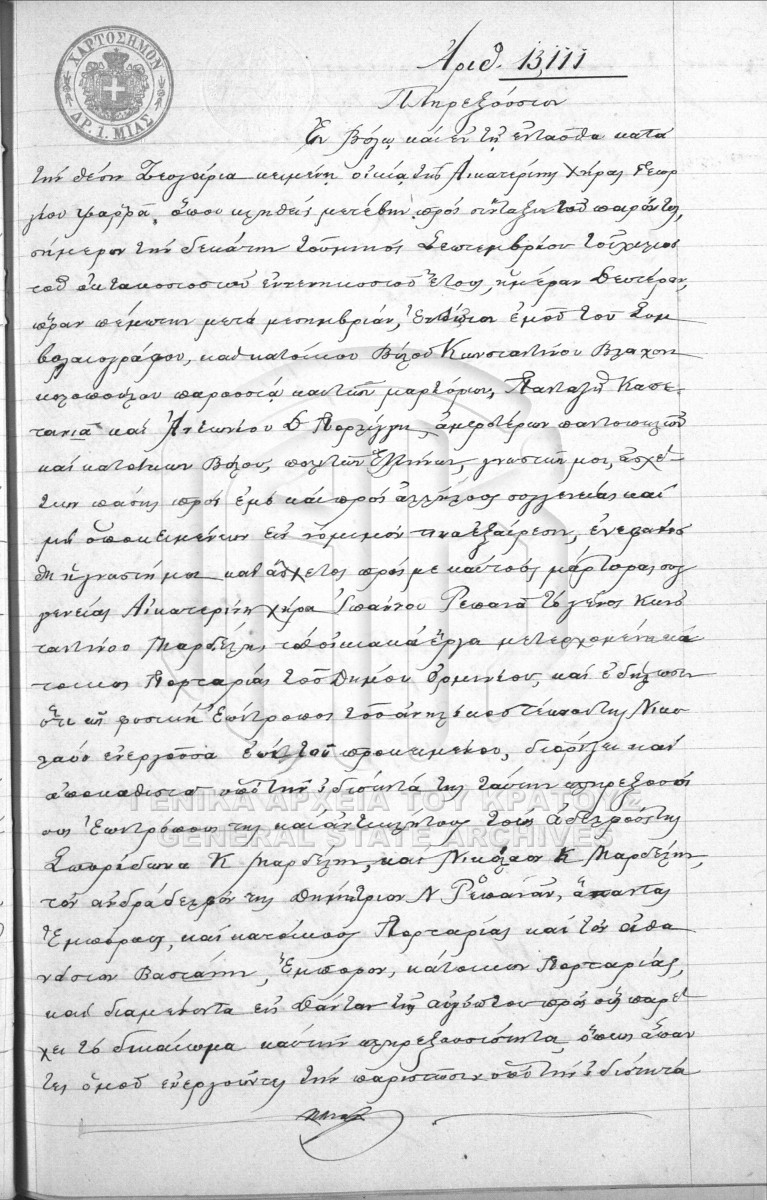 ΧΑΡΤΟΣΗΜΟΝ
ΔΡ. 1. ΜΙΑΣ
Αριθ. 13,111
Πληρεξούσιον
Εν Βόλω και εν τη ενταύθα κατά
την θέσιν Ζευγάρια κειμένη οικία της Αικατερίνης Χήρας Γεωρ
γίου Ψαρρά, όπου κληθείς μετέβην προς σύνταξιν του παρόντος,
σήμερον την δεκάτην του μηνός Σεπτεμβρίου του χιλιοσ
τού οκτακοσιοστού ενενηκοστού έτους, ημέραν Δευτέραν,
ώραν πέμπτην μετά μεσημβρίαν, ενώπιον εμού του Συμ
βολαιογράφου, και κατοίκου Βόλου Κωνσταντίνου Βλαχονι
κολοπούλου παρουσία και των μαρτύρων, Πανταζή Κασε
τανιά και Αντωνίου Δ Πορλίγγη, αμφοτέρων παντοπωλών
και κατοίκων Βόλου, πολιτών Ελλήνων, γνωστών μοι, ασχέ
των πάσης προς εμέ και προς αλλήλους συγγενείας και
μη υποκειμένων εις νόμιμόν τινα εξαίρεσιν, ενεφανίσ
θη η γνωστή μοι και άσχετος προς με και τους μάρτυρας συγ
γενείας Αικατερίνη χήρα Ιωάννου Ρεπανά το γένος Κωνσ
ταντίνου Μαρδέλη, τα οικιακά έργα μετερχομένη κά
τοικος Πορταριάς του Δήμου Ορμινίου, και εδήλωσεν
ότι ως φυσική Επίτροπος του ανηλίκου τέκνου της Νικο
λάου ενεργούσα επί του προκειμένου, διορίζει και
αποκαθιστά υπό την ιδιότητά της ταύτην πληρεξουσί
ους Επιτρόπους της και αντικλήτους τους αδελφούς της
Σπυρίδωνα Κ Μαρδέλην, και Νικόλαον Κ Μαρδέλην,
τον ανδράδελφόν της Δημήτριον Ν Ρεπανάν, άπαντας
Εμπόρους, και κατοίκους Πορταριάς και τον Αθα
νάσιον Βασιάκην, Έμπορον, κάτοικον Πορταριάς,
και διαμένοντα εις Τάνταν της Αιγύπτου προς ους παρέ
χει το δικαίωμα και την πληρεξουσιότητα, όπως άπαν
τες ομού ενεργούντες την παριστώσιν υπό την ιδιότητά
ΓΕΝΙΚΑ ΑΡΧΕΙΑ ΤΟΥ ΚΡΑΤΟΥΣ
GENERAL STATE ARCHIVES